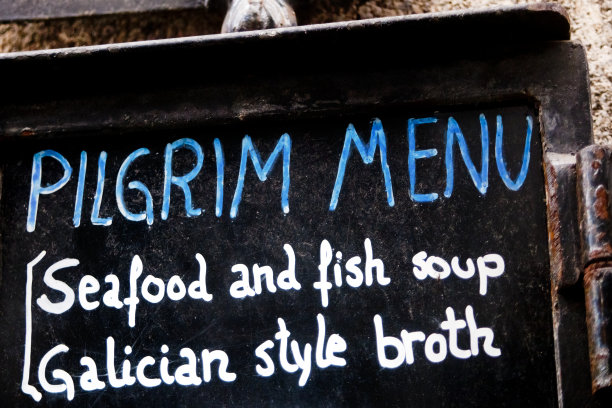 PILGRIM MENU
Seafood and fish soup
Galician style broth